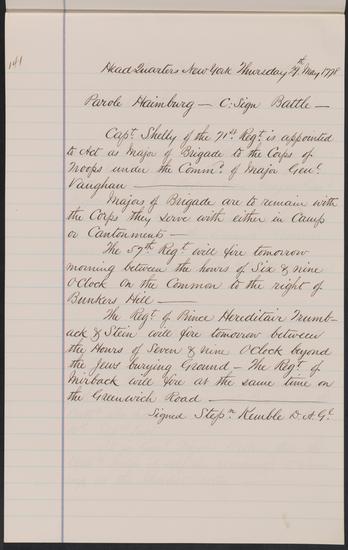 141
Head Quarters New York Thursday 7th May 1778
Parole Haimburg — C: Sign Battle —
Capt. Shelly of the 71st Regt. is appointed
to Act as Major of Brigade to the Corps of
Troops under the Commd. of Major Genl.
Vaughan —
Majors of Brigade are to remain with
the Corps they serve with either in Camp
or Cantonments —
The 57th Regt. will fire tomorrow
morning between the hours of Six & nine
O'Clock on the Common to the right of
Bunkers Hill —
The Regt. of Prince Hereditair Trumb-
ack & Stein will fire tomorrow between
the Hours of Seven & nine O'Clock beyond
the Jews burying Ground — The Regt. of
Mirback will fire at the same time on
the Greenwich Road —
Signed Stepn. Kemble D. A. Gl.